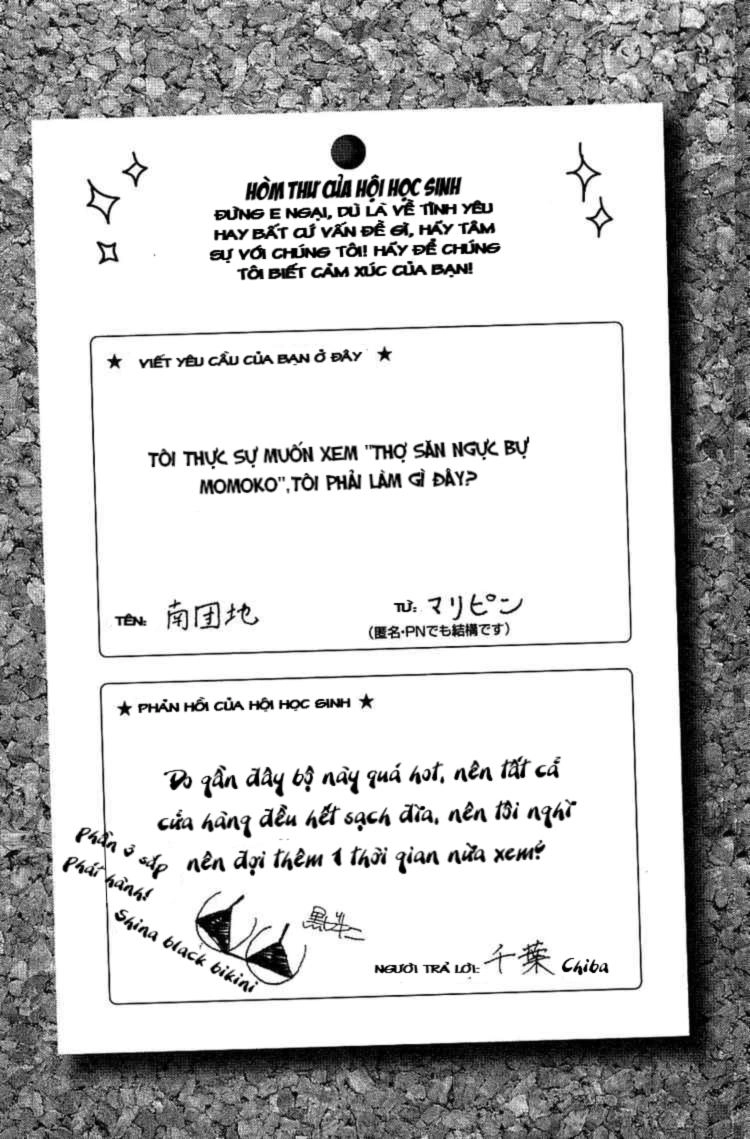 HÒM THƯ CỦA HỘI HỌC SINH
ĐỪNG E NGẠI, DÙ LÀ VỀ TÌNH YÊU
HAY BẤT CỨ VẤN ĐỀ GÌ, HÃY TÂM
SỰ VỚI CHÚNG TÔI! HÃY ĐỂ CHÚNG
TÔI BIẾT CẢM XÚC CỦA BẠN!
★ VIẾT YÊU CẦU CỦA BẠN Ở ĐÂY ★
TÔI THỰC SỰ MUỐN XEM "THỢ SĂN NGỰC BỰ
MOMOKO",TÔI PHẢI LÀM GÌ ĐÂY?
TÊN: 南団地
TỪ: マリピン
(匿名・PNでも結構です)
★ PHẢN HỒI CỦA HỘI HỌC SINH ★
Do gần đây bộ này quá hot, nên tất cả
cửa hàng đều hết sạch đĩa, nên tôi nghĩ
nên đợi thêm 1 thời gian nữa xem?
Phần 3 sắp
phát hành!
Shina black bikini
NGƯỜI TRẢ LỜI: 千葉 Chiba